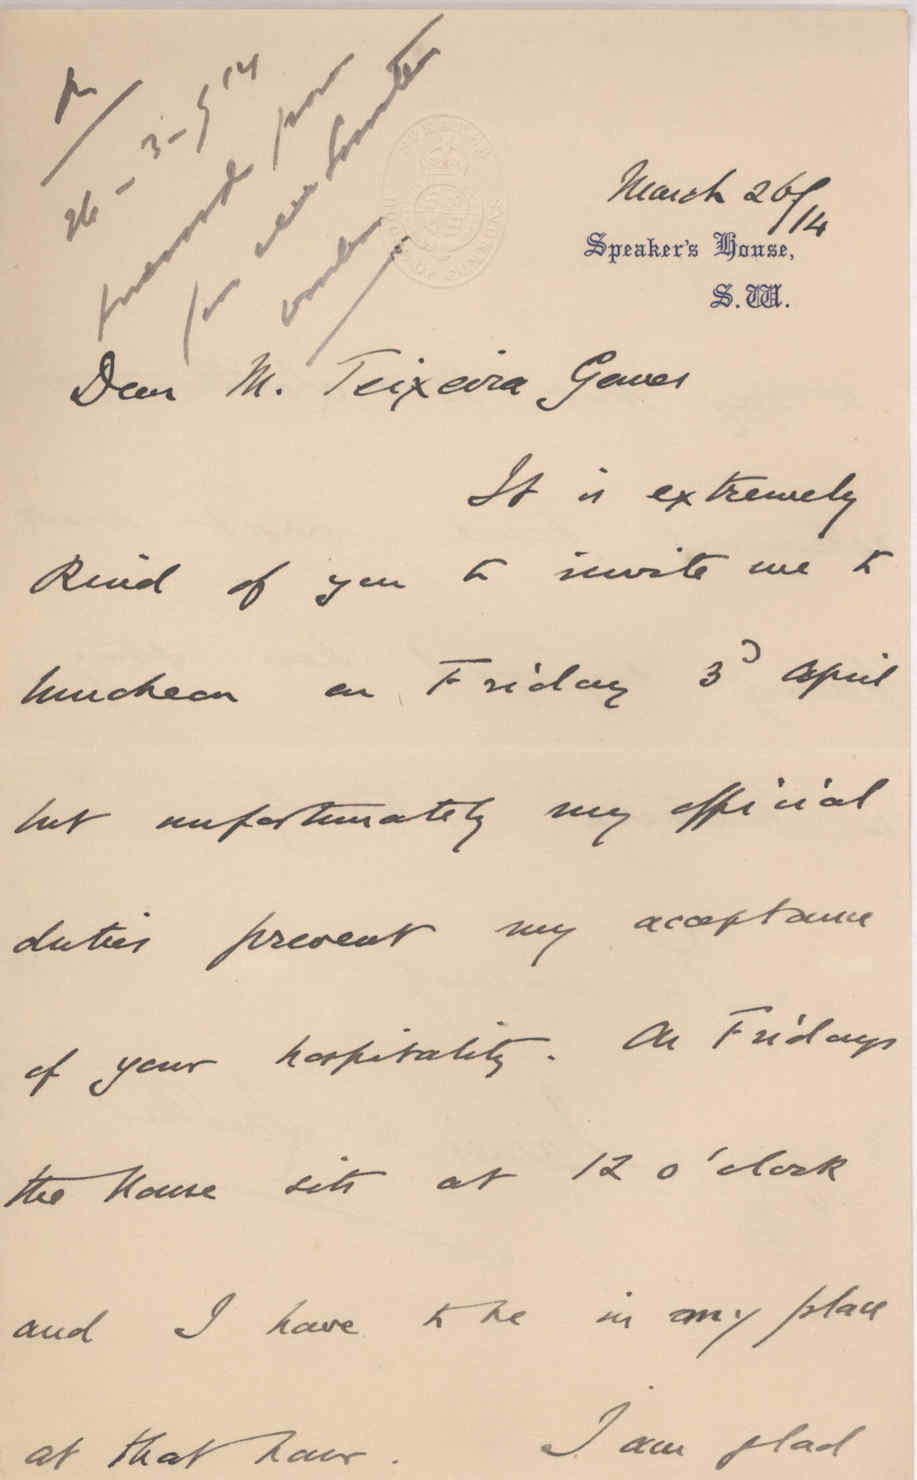 R
26-3-914
March 26/14
Speaker's House,
S.W.
Dear M. Teixeira Gomes
It is extremely
kind of you to invite me to
luncheon on Friday 3d April
but unfortunately my official
duties prevent my acceptance
of your hospitality. On Fridays
the House sits at 12 o'clock
and I have to be in my place
at that hour. I am glad